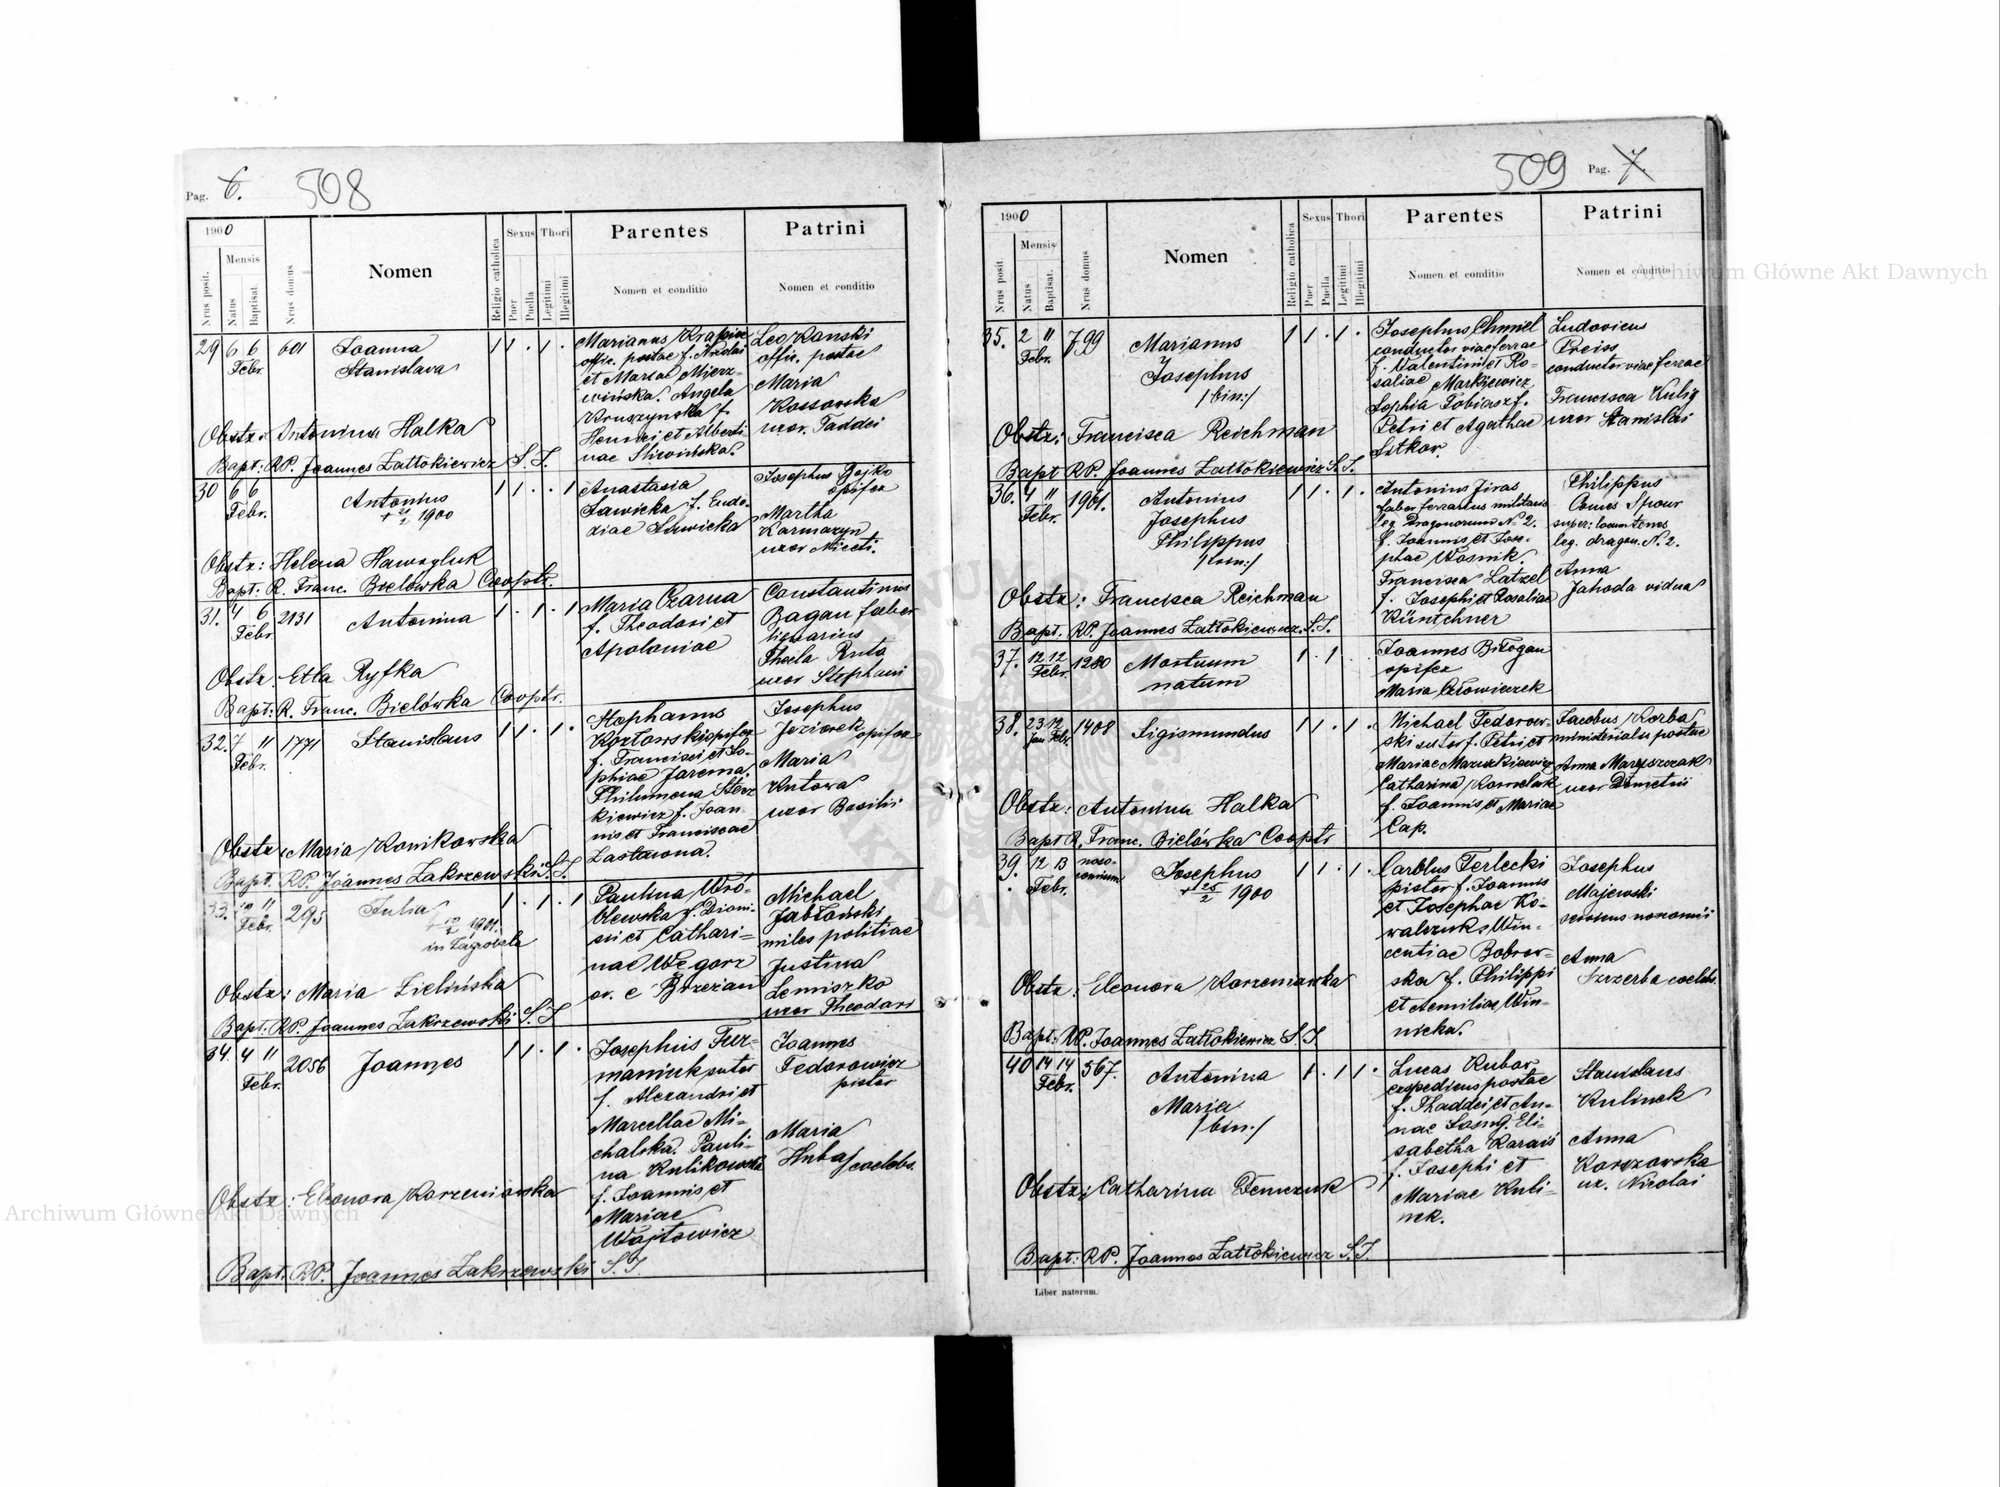 Pag. 6. 508
1900
Nrus posit.
Mensis
Natus
Baptisat.
Nrus domus
Nomen
Religio catholica
Sexus
Puer
Puella
Thori
Legitimi
Illegitimi
Parentes
Nomen et conditio
Patrini
Nomen et conditio
29 6 6 Febr. 601
Joanna
Stanislava
1 1 . 1 .
Marianus
offic. postae f. Nicolai
et Mariae Mierz-
wińska. Angela
Kruszynska f.
Henrici et Alberti-
nae Sliwińska.
Leo Kanski
offic. postae
Maria
Kossowska
uxor. Taddei
Obstz: Antonina Halka
Bapt: RP. Joannes Zatłokiewicz S.J.
30 6 6 Febr.
Antonius
+ 21/2 1900
1 1 . . 1
Anastasia
Sawicka f. Eudo-
xiae Sawicka
Josephus Bojko
opifex
Martha
Karmazyn
uxor Nicoti.
Obstz: Helena Hawryluk
Bapt: R. Franc. Bielówka Cooptr.
31. 4 6 Febr 2131
Antonina
1 . 1 . 1
Maria Czarna
f. Theodori et
Apoloniae
Constantinus
Bagan faber
lignarius
Thecla Ruta
uxor Stephani
Obstz: Etla Ryfka
Bapt: R. Franc. Bielówka Cooptr.
32. 7 " Febr. 1771
Stanislaus
1 1 . 1 .
Stephanus
Kozłowski opifex
f. Francisci et So-
phiae Jarema.
Philumena Sterz
kiewicz f. Joan-
nis et Franciscae
Zastawna.
Josephus
Jeziorek opifex
Maria
Kutowa
uxor Basilii
Obstz: Maria Konikowska
Bapt. RP. Joannes Zakrzewski S.J.
33. 10 " Febr. 295
Julia
1901.
in Zagrobela
1 . 1 . 1
Paulina Wró-
blewska f. Dioni-
sii et Cathari-
nae Węgorz
or. e Brzeżan
Michael
Jabłoński
miles politiae
Justina
Lemiszko
uxor Theodori
Obstz: Maria Zielińska
Bapt: RP. Joannes Zakrzewski S.J
34. 4 " Febr. 2056
Joannes
1 1 . 1 .
Josephus Fur-
maniuk sutor
f. Alexandri et
Marcellae Mi-
chalska. Pauli-
na Kulikowska
f. Joannis et
Mariae
Wojtowicz
Joannes
Fedorowicz
pistor
Maria
Hubaj coelebs.
Obstz: Eleonora Korzeniowska
Bapt. RP. Joannes Zakrzewski S.J.
509 Pag. 7
1900
Nrus posit.
Mensis
Natus
Baptisat.
Nrus domus
Nomen
Religio catholica
Sexus
Puer
Puella
Thori
Legitimi
Illegitimi
Parentes
Nomen et conditio
Patrini
Nomen et conditio
35. 2 " Febr. 799
Marianus
Josephus
/bin:/
1 1 . 1 .
Josephus Chmiel
conductor viae ferrae
f. Valentini et Ro-
saliae Markiewicz
Sophia Tobiasz f.
Petri et Agathae
Sitkov.
Ludovicus
Preiss
conductor viae ferrae
Francisca Kulij
uxor Stanislai
Obstz: Francisca Reichman
Bapt RP. Joannes Zatłokiewicz S.J.
36. 4 " Febr. 1901.
Antonius
Josephus
Philippus
/bin:/
1 1 . 1 .
Antonius Jiras
faber ferrarius militaris
leg. Dragonorum N. 2.
f. Joannis et Jose-
phae Wosnik.
Francisca Latzel
f. Josephi et Rosaliae
Küntchner
Philippus
Comes Spour
super: locumtenens
leg. dragon. N. 2.
Anna
Jahoda vidua
Obstz: Francisca Reichman
Bapt. RP. Joannes Zatłokiewicz. S.J.
37. 12 12 Febr. 1280
Mortuum
natum
1 . 1
Joannes Biłogan
opifex
Maria Człowieczek
38. 23 12 Jan Febr. 1408
Sigismundus
1 1 . 1 .
Michael Fedorow-
ski sutor f. Petri et
Mariae Mazurkiewicz
Catharina Kowaluk
f. Joannis et Mariae
Cap.
Jacobus Korba
ministerialis postae
Anna Maryszczak
uxor Demetrii
Obstz: Antonina Halka
Bapt R. Franc. Bielówka Cooptr
39. 12 13 Febr. noso-
comium
Josephus
+ 25/2 1900
1 1 . 1 .
Carolus Terlecki
pistor f. Joannis
et Josephae Ko-
walczuk. Vin-
centiae Bobrow-
ska f. Philippi
et Aemiliae Win-
nicka.
Josephus
Majewski
servus nosocomii
Anna
Szczerba coelebs.
Obstz: Eleonora Korzeniowska
Bapt: RP. Joannes Zatłokiewicz S.J
40 14 14 Febr. 567.
Antonina
Maria
/bin:/
1 . 1 1 .
Lucas Kubow
expedicus postae
f. Thaddei et An-
nae Samg. Eli-
sabetha Karais
f. Josephi et
Mariae Kuli-
nek.
Stanislaus
Kulinek
Anna
Korczowska
ux. Nicolai
Obstz: Catharina Demczuk
Bapt: RP. Joannes Zatłokiewicz S.J.
Liber natorum.
Archiwum Główne Akt Dawnych
Archiwum Główne Akt Dawnych